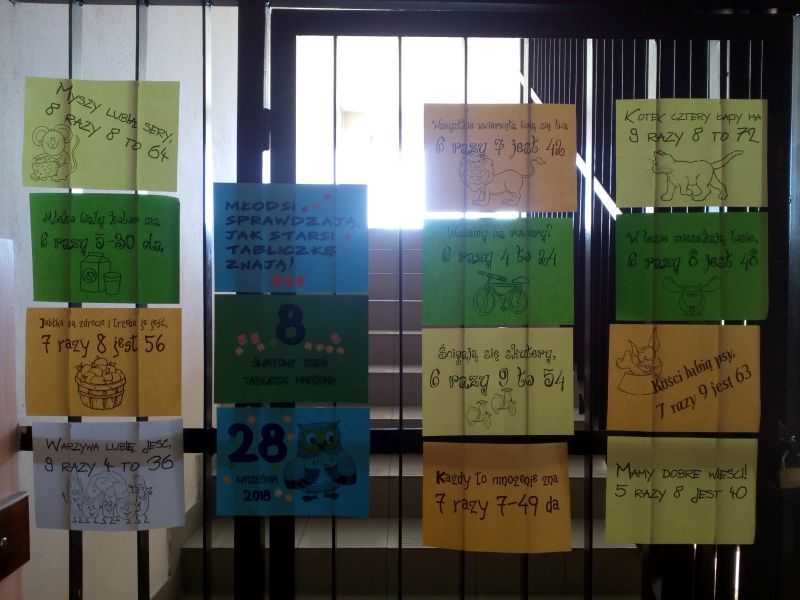 Myszy lubią sery,
8 razy 8 to 64
Mleko biały kolor ma
6 razy 5-30 da
Jabłka są zdrowe i trzeba je jeść,
7 razy 8 jest 56
Warzywa lubię jeść,
9 razy 4 to 36
MŁODSI
SPRAWDZAJĄ,
JAK STARSI
TABLICZKĘ
ZNAJĄ!
8
ŚWIATOWY DZIEŃ
TABLICZKI MNOŻENIA
28
WRZEŚNIA
2018
Wszystkie zwierzęta boją się lwa
6 razy 7 jest 42
Idziemy na rowery?
6 razy 4 to 24
Ścigają się skutery,
6 razy 9 to 54
Każdy to mnożenie zna
7 razy 7-49 da
Kotek cztery łapy ma
9 razy 8 to 72
W lesie mieszkają łosie,
6 razy 8 jest 48
Kości lubią psy,
7 razy 9 jest 63
Mamy dobre wieści!
5 razy 8 jest 40